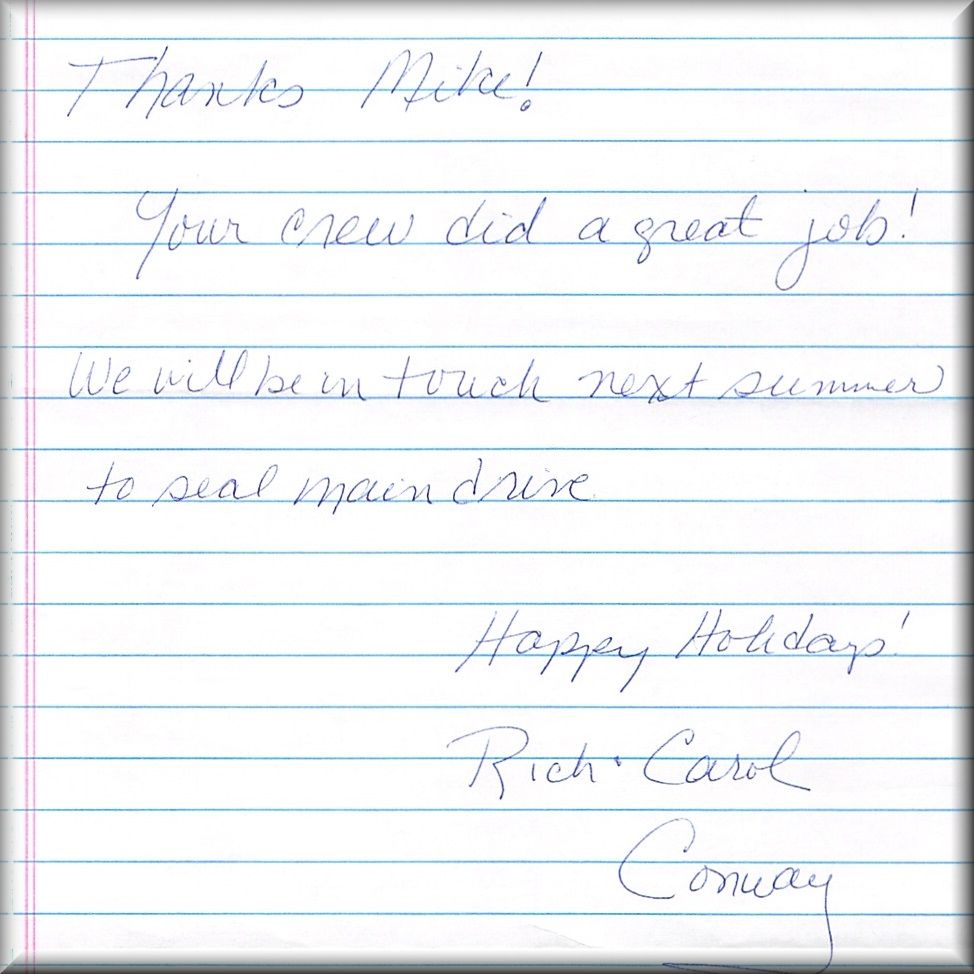 Thanks Mike!
Your crew did a great job!
We will be in touch next summer
to seal main drive
Happy Holidays!
Rich · Carol
Conway